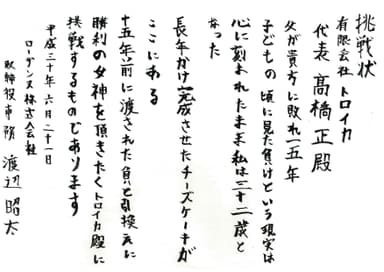 挑戦状
有限会社トロイカ
代表 髙橋正殿
父が貴方に敗れ一五年
子どもの頃に見た負けという現実は
心に刻まれたまま私は三十二歳と
なった
長年かけ完成させたチーズケーキが
ここにある
十五年前に渡された負と引換えに
勝利の女神を頂きたくトロイカ殿に
挑戦するものであります
平成三十年六月二十一日
ローデンス株式会社
取締役専務 渡辺昭太